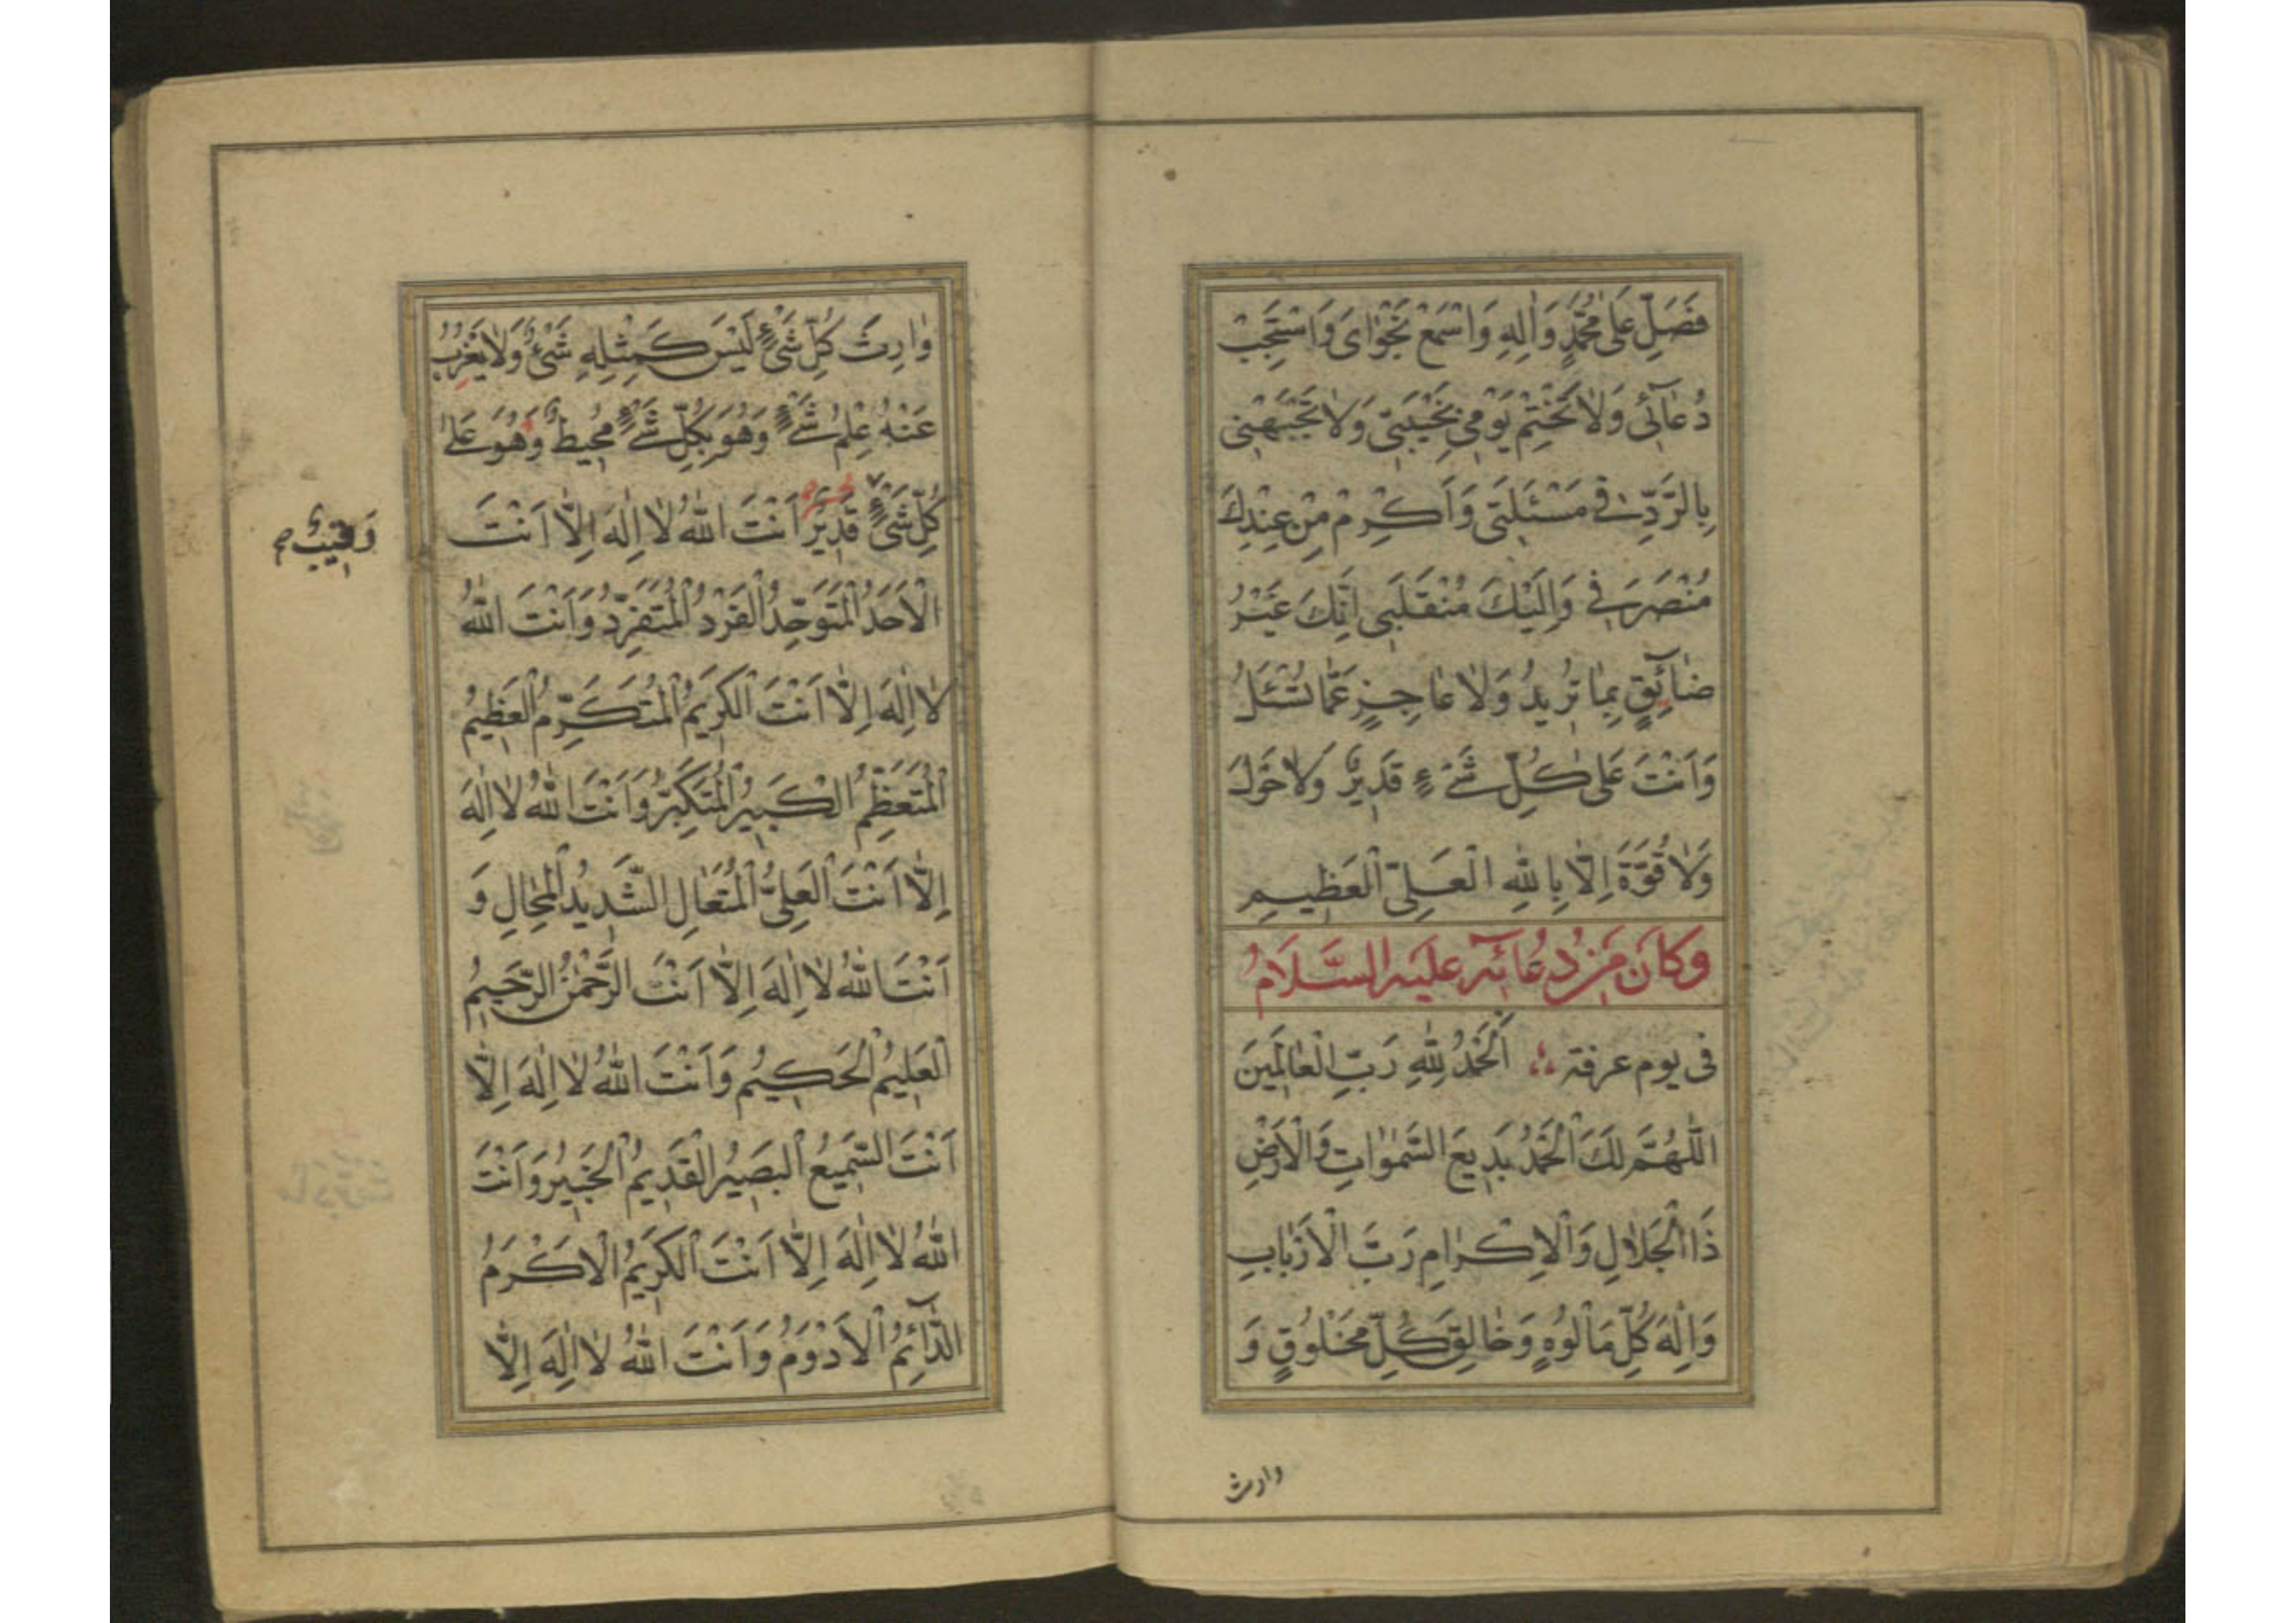 فَصَلِّ عَلٰى مُحَمَّدٍ وَاٰلِهِ وَاسْمَعْ نَجْوٰاىَ وَاسْتَجِبْ
دُعٰآئى وَلاٰ تَخْتِمْ يَوْمى بِخَيْبَتى وَلاٰ تَجْبَهْنى
بِالرَّدِّ فى مَسْئَلَتى وَاَكْرِمْ مِنْ عِنْدِكَ
مُنْصَرَفى وَاِلَيْكَ مُنْقَلَبى اِنَّكَ غَيْرُ
ضٰآئِقٍ بِمٰا تُريدُ وَلاٰ عٰاجِزٍ عَمّٰا تُسْئَلُ
وَاَنْتَ عَلٰى كُلِّ شَىْءٍ قَديرٌ وَلاٰ حَوْلَ
وَلاٰ قُوَّةَ اِلّاٰ بِاللهِ الْعَلِىِّ الْعَظيمِ
وَكَانَ مِنْ دُعَائِهِ عَلَيْهِ السَّلَامُ
فى يوم عرفة اَلْحَمْدُ لِلّٰهِ رَبِّ الْعٰالَمينَ
اللّٰهُمَّ لَكَ الْحَمْدُ بَديعَ السَّمٰوٰاتِ وَالْاَرْضِ
ذَا الْجَلاٰلِ وَالْاِكْرٰامِ رَبَّ الْاَرْبٰابِ
وَاِلٰهَ كُلِّ مَاْلُوهٍ وَخٰالِقَ كُلِّ مَخْلُوقٍ وَ
وارث
وٰارِثَ كُلِّ شَىْءٍ لَيْسَ كَمِثْلِهِ شَىْءٌ وَلاٰ يَعْزُبُ
عَنْهُ عِلْمُ شَىْءٍ وَهُوَ بِكُلِّ شَىْءٍ مُحيطٌ وَهُوَ عَلٰى
كُلِّ شَىْءٍ قَديرٌ اَنْتَ اللهُ لاٰ اِلٰهَ اِلّاٰ اَنْتَ
رَقيبٌ
الْاَحَدُ الْمُتَوَحِّدُ الْفَرْدُ الْمُتَفَرِّدُ وَاَنْتَ اللهُ
لاٰ اِلٰهَ اِلّاٰ اَنْتَ الْكَريمُ الْمُتَكَرِّمُ الْعَظيمُ
الْمُتَعَظِّمُ الْكَبيرُ الْمُتَكَبِّرُ وَاَنْتَ اللهُ لاٰ اِلٰهَ
اِلّاٰ اَنْتَ الْعَلِىُّ الْمُتَعٰالِ الشَّديدُ الْمِحٰالِ وَ
اَنْتَ اللهُ لاٰ اِلٰهَ اِلّاٰ اَنْتَ الرَّحْمٰنُ الرَّحيمُ
الْعَليمُ الْحَكيمُ وَاَنْتَ اللهُ لاٰ اِلٰهَ اِلّاٰ
اَنْتَ السَّميعُ الْبَصيرُ الْقَديمُ الْخَبيرُ وَاَنْتَ
اللهُ لاٰ اِلٰهَ اِلّاٰ اَنْتَ الْكَريمُ الْاَكْرَمُ
الدّٰآئِمُ الْاَدْوَمُ وَاَنْتَ اللهُ لاٰ اِلٰهَ اِلّاٰ